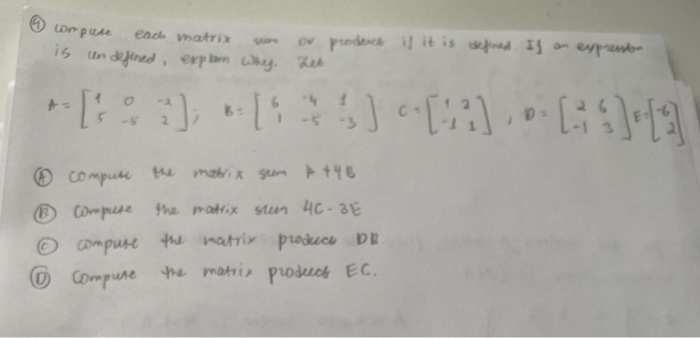 ④ compute each matrix sum or product if it is defined If an expression
is undefined, explain why. Let
A = [1 0 -2; 5 -5 2]; B = [6 -4 1; 1 -5 -3] C = [1 2; -1 1], D = [2 6; -1 3] E = [-6; 2]
Ⓐ compute the matrix sum A + 4B
Ⓑ Compute the matrix sum 4C - 3E
Ⓒ compute the matrix product DB
Ⓓ Compute the matrix product EC.